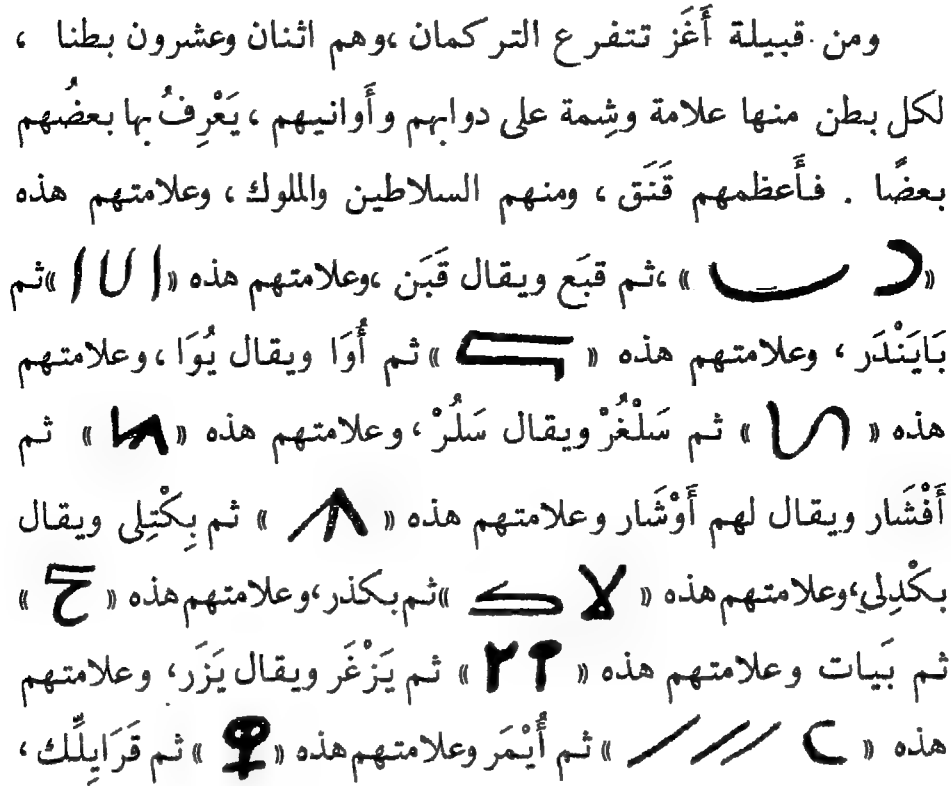 ومن قبيلة أَغَز تتفرع التركمان ،وهم اثنان وعشرون بطنا ،
لكل بطن منها علامة وشِمة على دوابهم وأَوانيهم ، يَعْرِفُ بها بعضُهم
بعضًا . فأَعظمهم قَنَق ، ومنهم السلاطين والملوك ، وعلامتهم هذه
« » ،ثم قبَع ويقال قَبَن ،وعلامتهم هذه « » ثم
بَايَنْدَر ، وعلامتهم هذه « » ثم أُوَا ويقال يُوَا ، وعلامتهم
هذه « » ثم سَلْغُرْ ويقال سَلُرْ ، وعلامتهم هذه « » ثم
أَفْشَار ويقال لهم أَوْشَار وعلامتهم هذه « » ثم بِكْتِلِى ويقال
بكْدِلِى ،وعلامتهم هذه « » ثم بكذر ،وعلامتهم هذه « »
ثم بَيات وعلامتهم هذه « » ثم يَزْغَر ويقال يَزَر ، وعلامتهم
هذه « » ثم أَيْمَر وعلامتهم هذه « » ثم قَرَابِلِّك ،